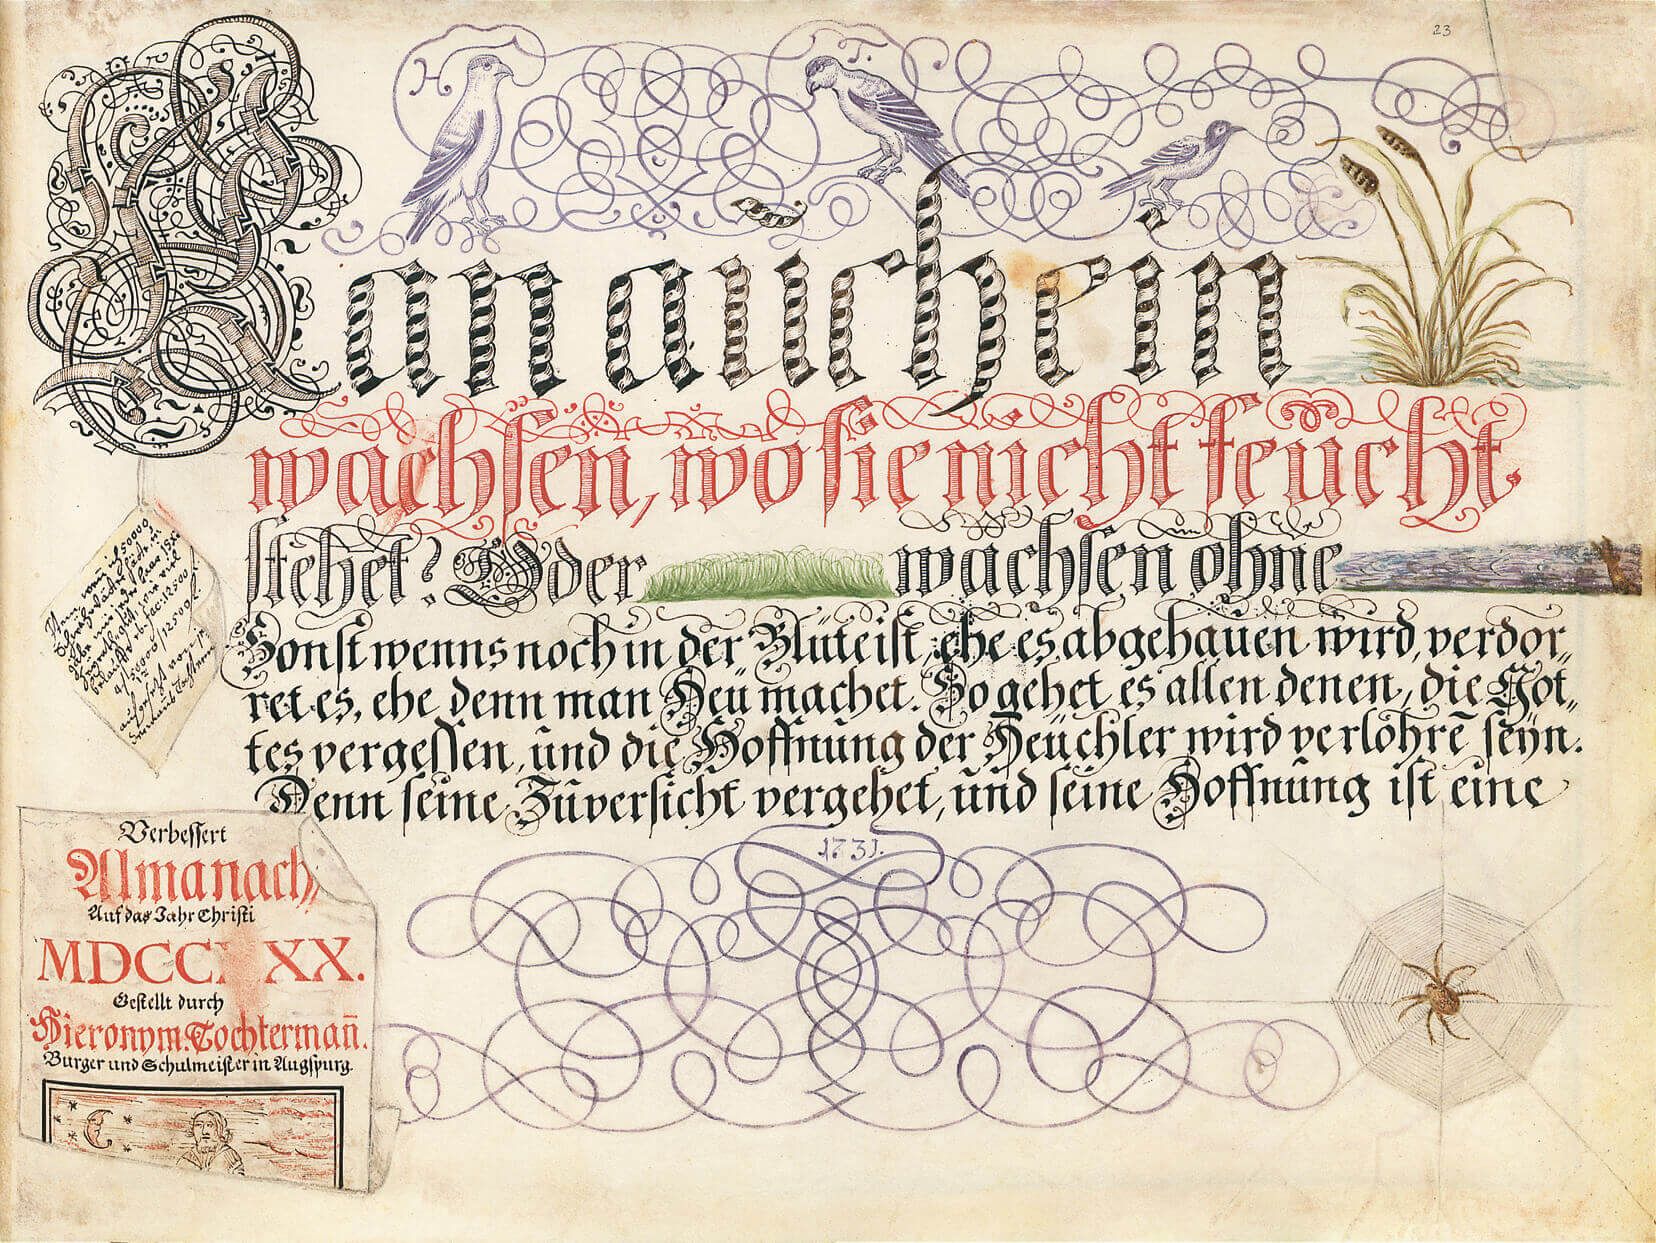 23
H. T.
Kan auch ein
wachsen, wo sie nicht feucht
stehet? Oder wachsen ohne
Sonst wenns noch in der Blüte ist, ehe es abgehauen wird, verdor=
ret es, ehe denn man Heu machet. So gehet es allen denen, die Got=
tes vergessen, und die Hoffnung der Heuchler wird verlohrē seyn.
Denn seine Zuversicht vergehet, und seine Hoffnung ist eine
1731.
Verbessert
Almanach,
Auf das Jahr Christi
MDCC XX.
Gestellt durch
Hieronym: Tochtermañ.
Burger und Schulmeister in Augspurg.